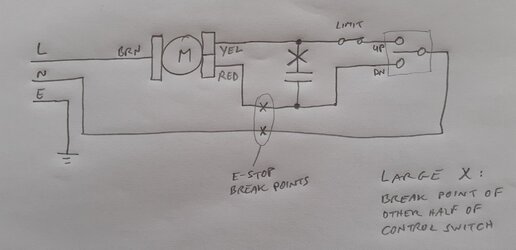 L
N
E
BRN
M
YEL
RED
LIMIT
UP
DN
E-STOP
BREAK POINTS
LARGE X :
BREAK POINT OF
OTHER HALF OF
CONTROL SWITCH